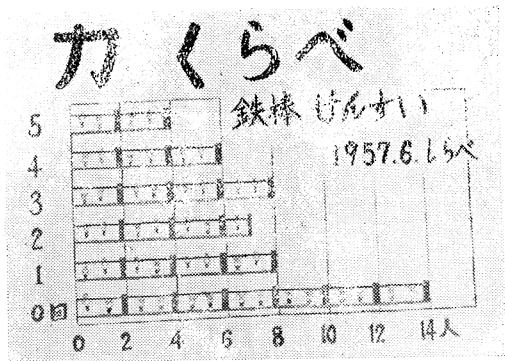 力くらべ
鉄棒 けんすい
1957.6.しらべ
5
4
3
2
1
0回
0 2 4 6 8 10 12 14人